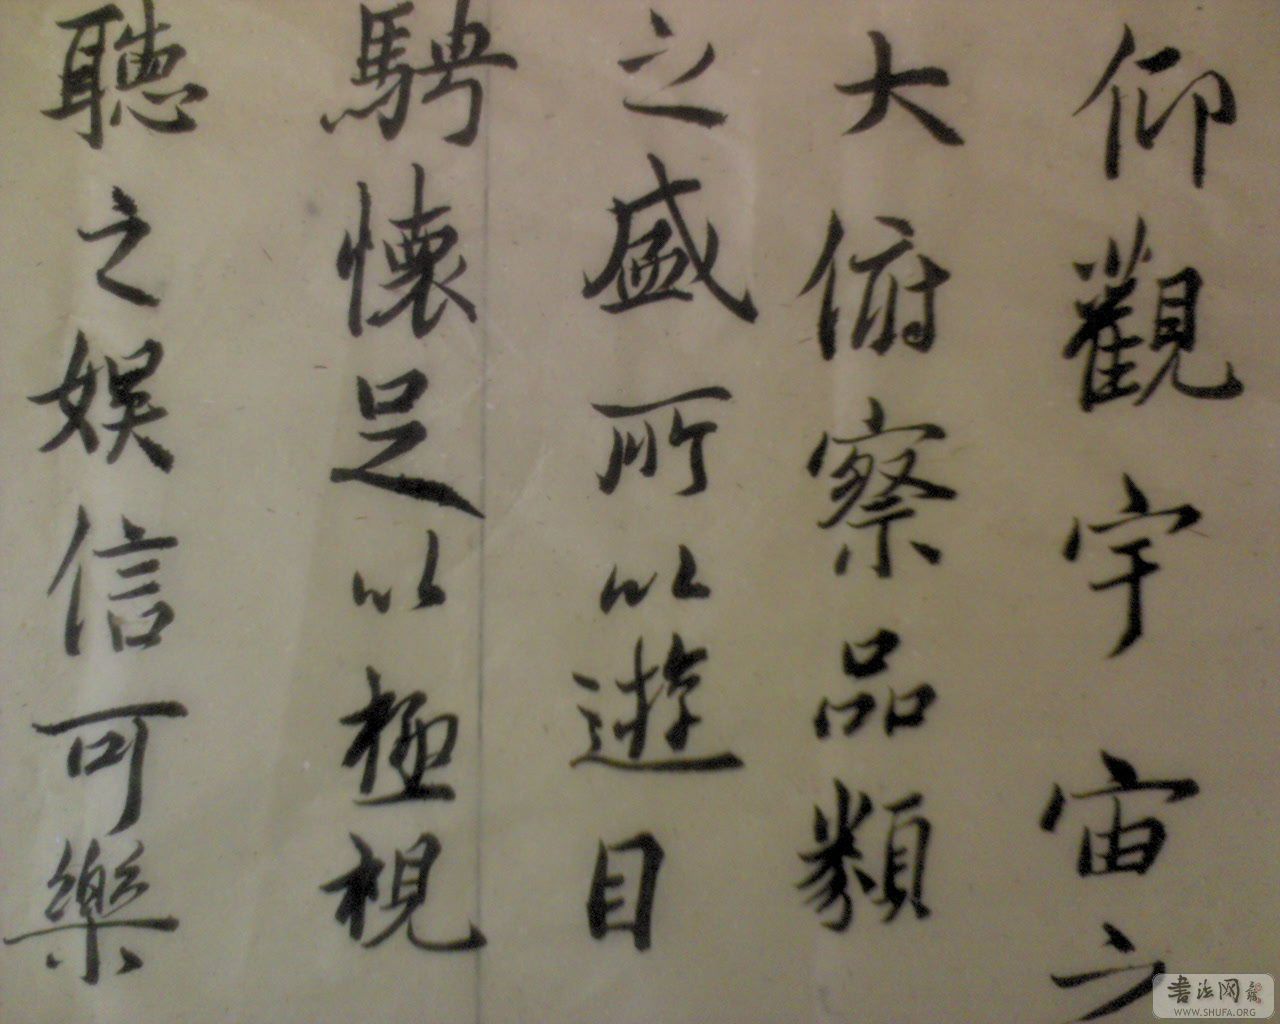 仰觀宇宙之
大俯察品類
之盛所以遊目
騁懷足以極視
聽之娛信可樂
書法网
WWW.SHUFA.ORG